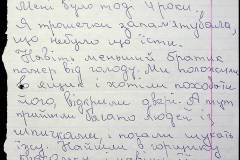 Мені було тоді 4 роки.
Я трошечки запам'ятувала,
що небуло що їсти.
Навіть меньший братик
помер від голоду. Ми положили
в ящик і хотіли поховати
його, відкрили двері. А тут
прийшли багато людей із
шпичками, і почали шукати
їжу. Найшли в горщику